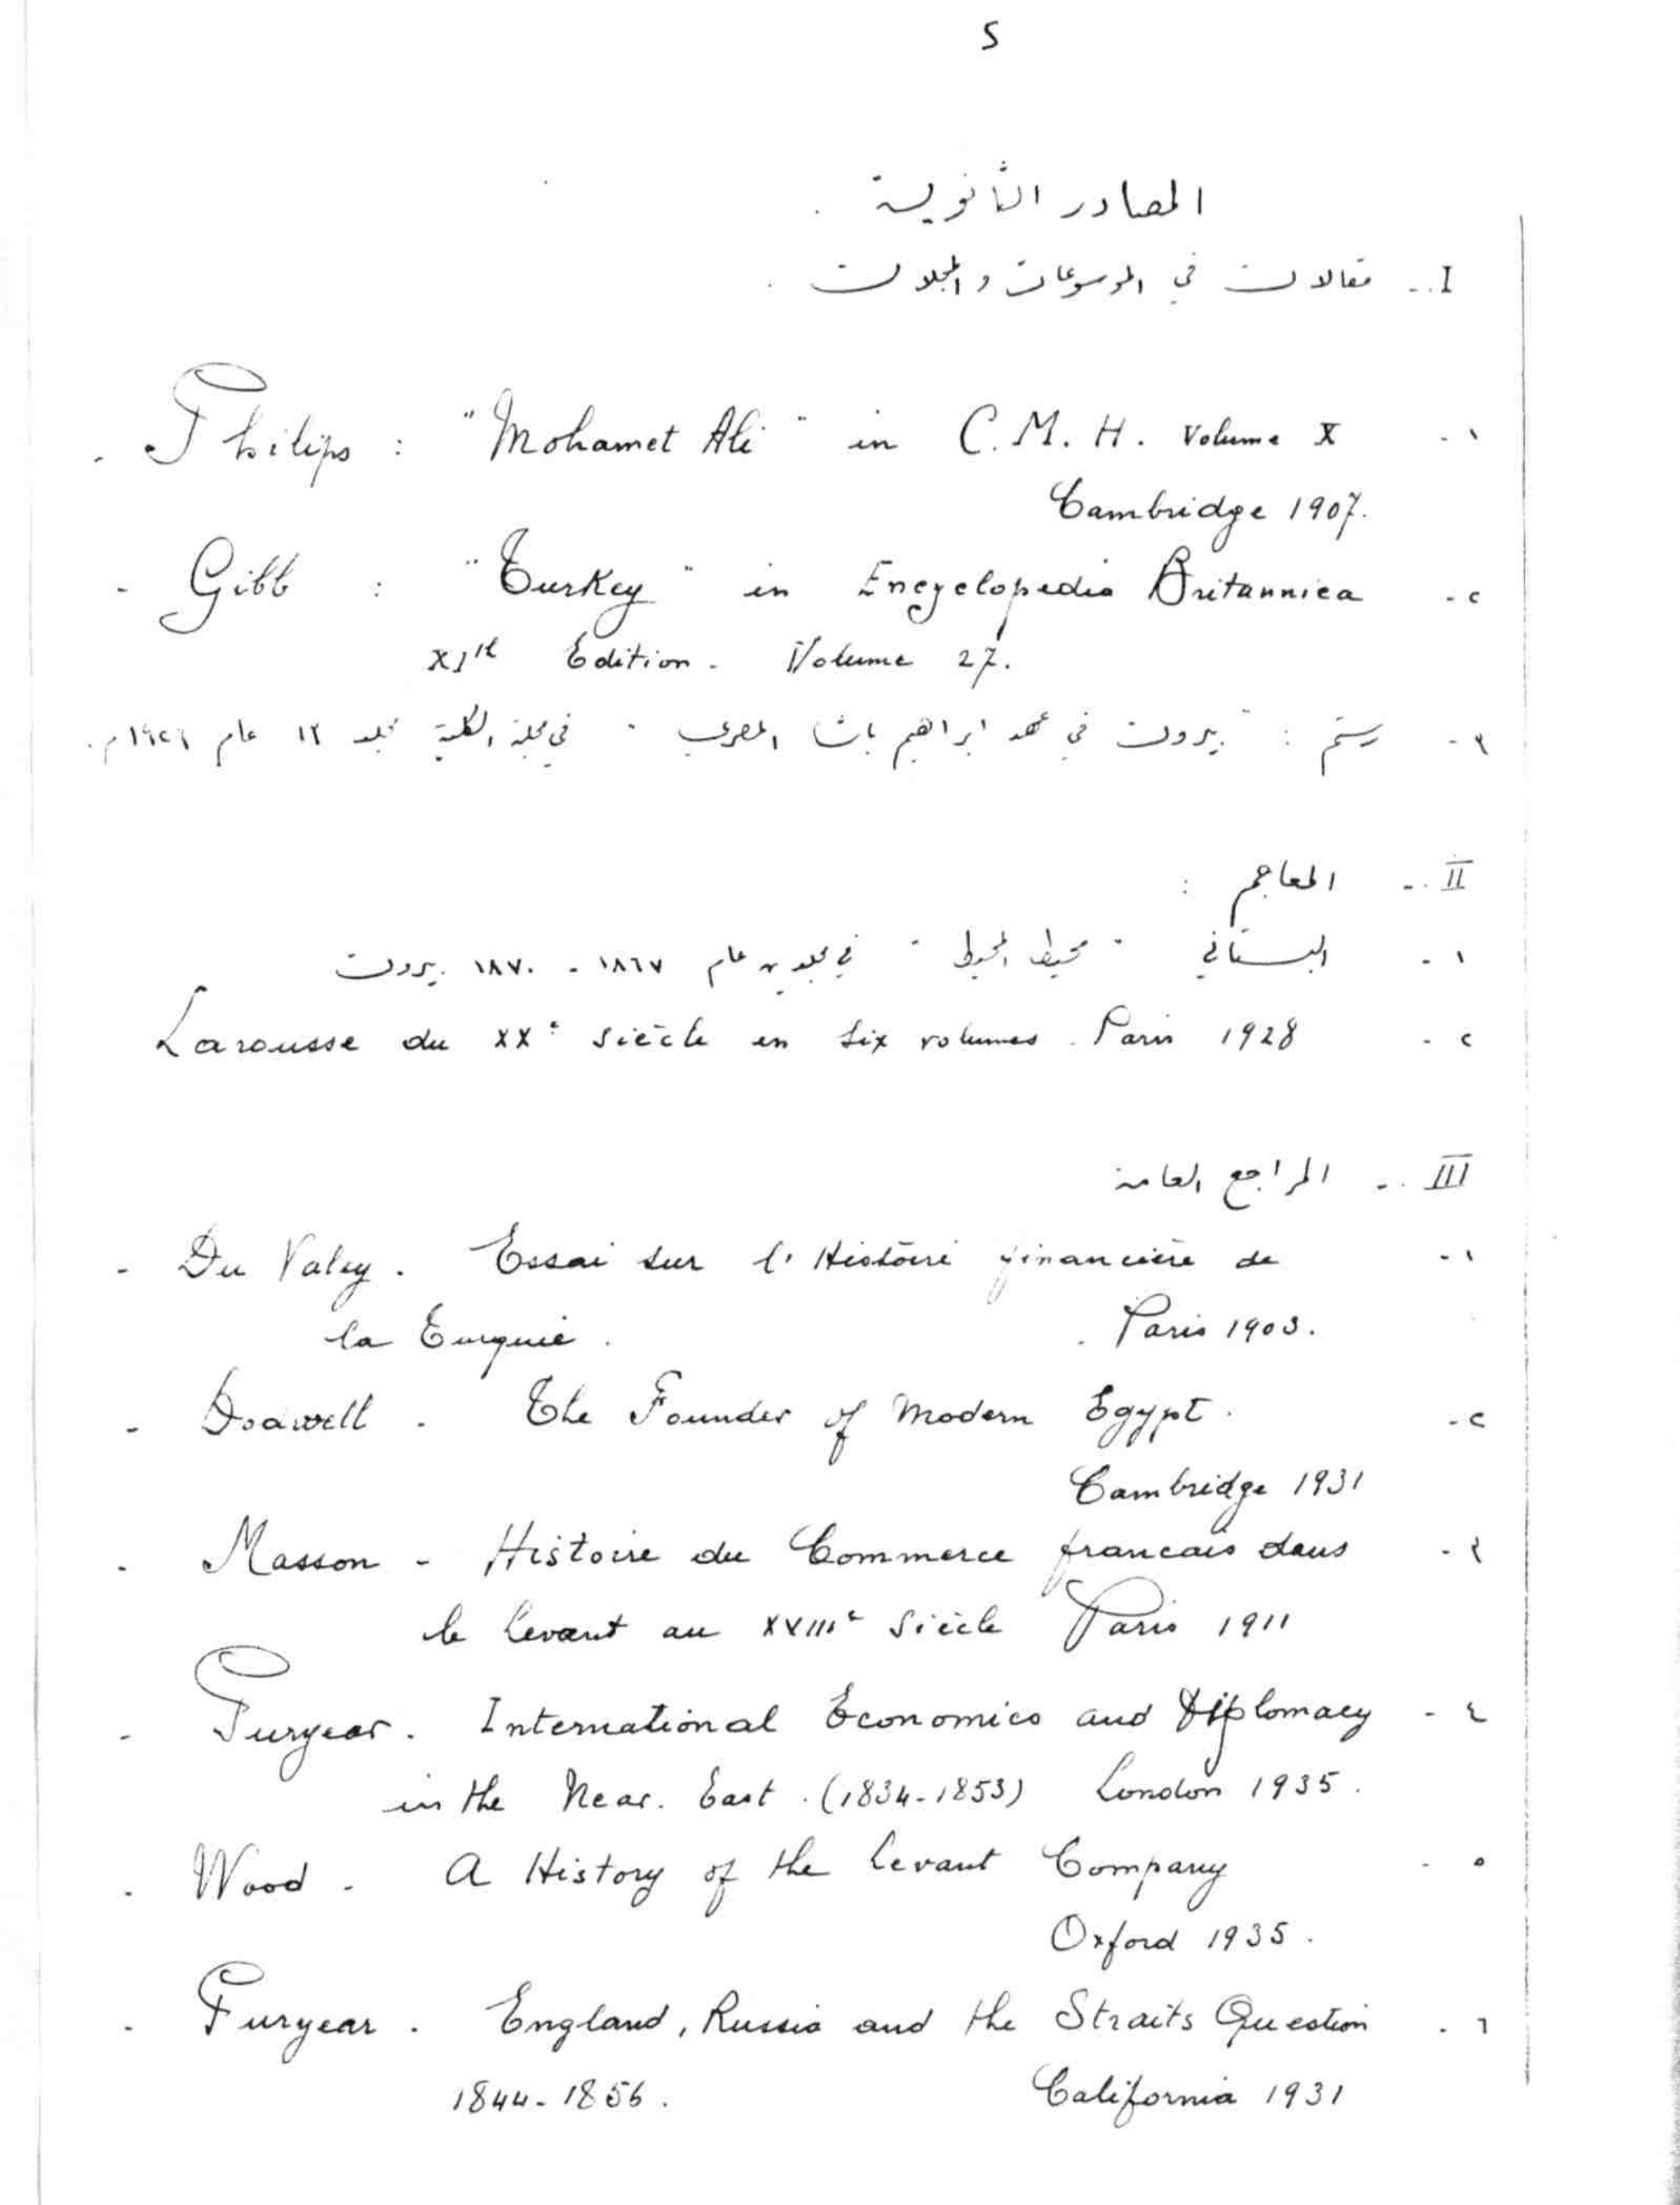 5
المصادر الثانوية .
I .- مقالات في الموسوعات والمجلات .
١ - Philips : "Mohamet Ali" in C. M. H. Volume X
Cambridge 1907.
٢ - Gibb : "Turkey" in Encyclopedia Britannica
XIth Edition - Volume 27.
٣ - رستم : "بيروت في عهد ابراهيم باشا المصري" في مجلة الكلية مجلد ١٣ عام ١٩٢٦ م.
II .- المعاجم :
١ - البستاني "محيط المحيط" في مجلدين عام ١٨٦٧ - ١٨٧٠ بيروت
٢ - Larousse du XXe siècle en six volumes. Paris 1928
III .- المراجع العامة
١ - Du Valey . Essai sur l'Histoire financière de
la Turquie . Paris 1903.
٢ - Dodwell - The Founder of Modern Egypt.
Cambridge 1931
٣ - Masson - Histoire du Commerce francais dans
le Levant au XVIIIe Siècle Paris 1911
٤ - Puryear . International Economics and Diplomacy
in the Near. East . (1834-1853) London 1935 .
٥ - Wood - A History of the Levant Company
Oxford 1935 .
٦ - Puryear . England, Russia and the Straits Question
1844-1856 . California 1931